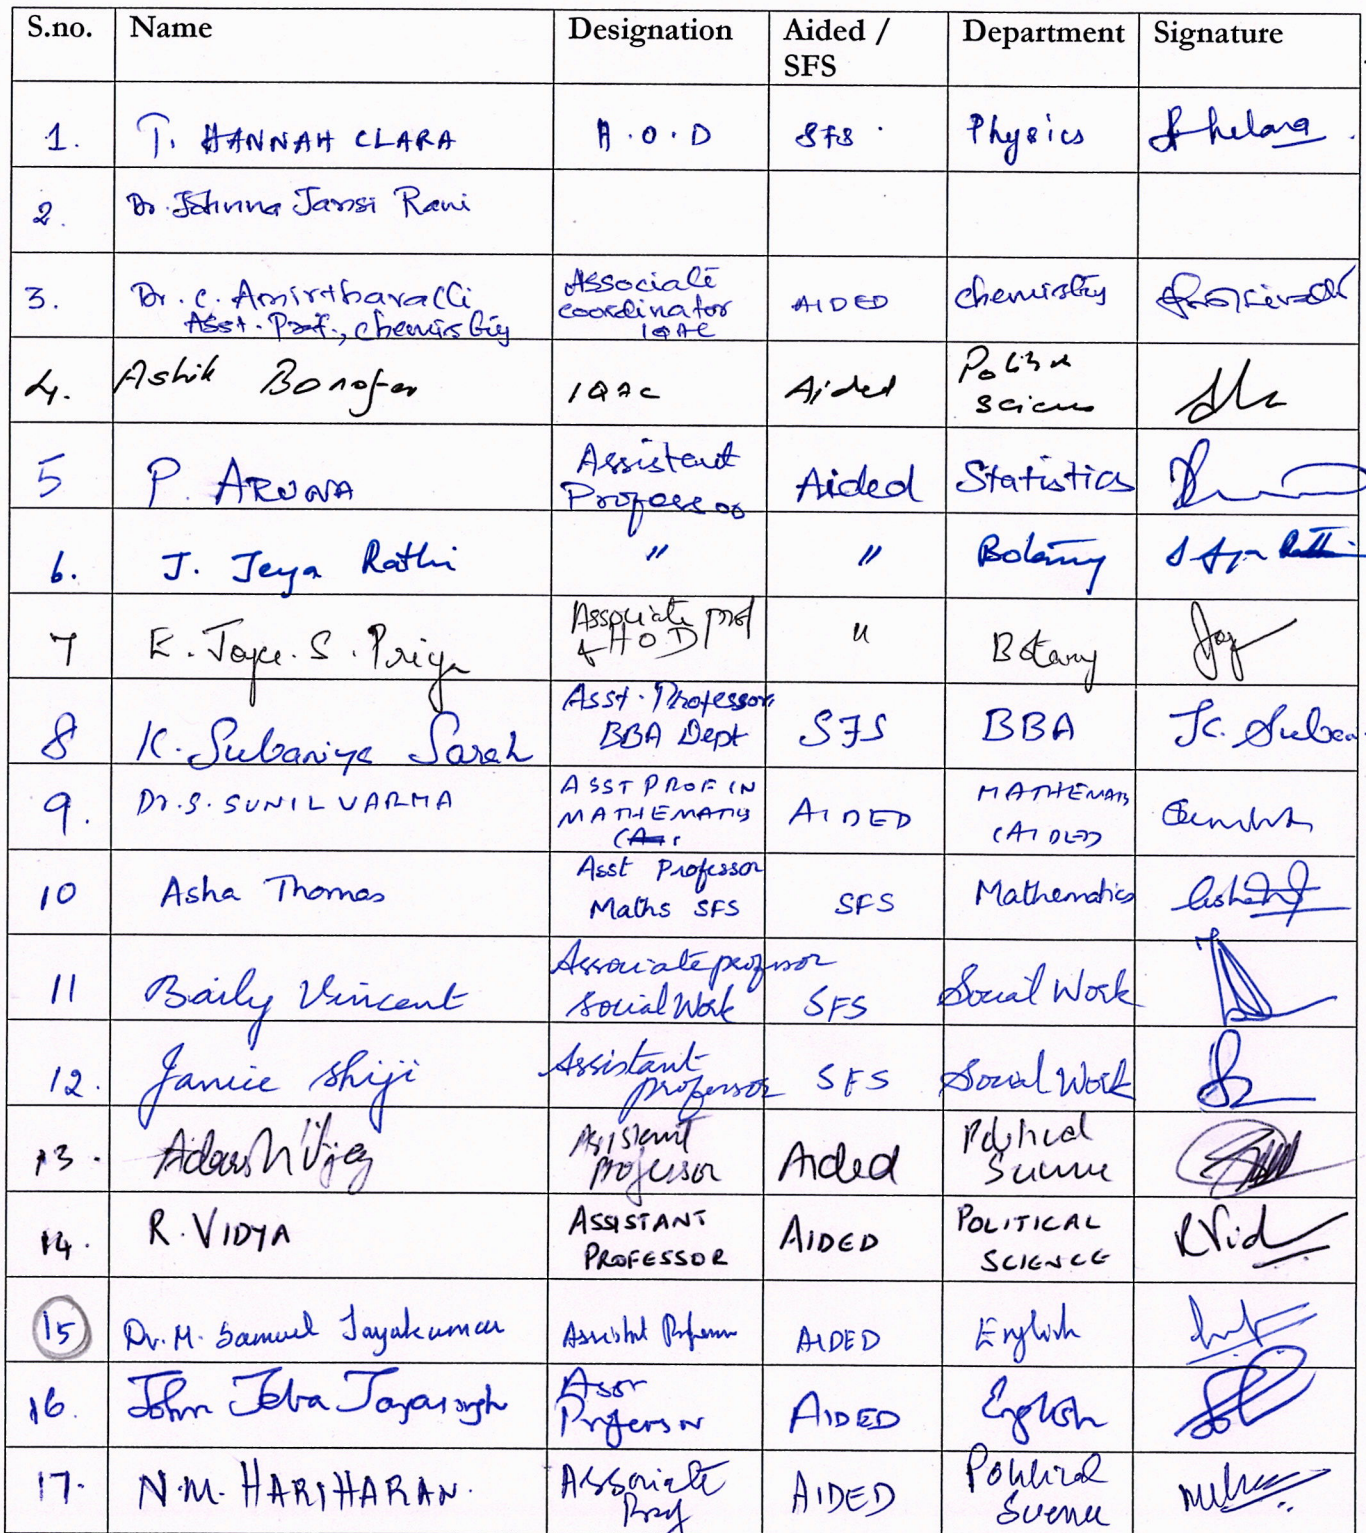 S.no. Name Designation Aided / Department Signature
SFS
1. T. HANNAH CLARA H.O.D SFS Physics
2. Dr. Johnna Jansi Rani
3. Dr. C. Amirthavalli Associate coordinator IQAC AIDED chemistry
Asst. Prof., chemistry
4. Ashik Bonofer IQAC Aided Political Science
5 P. ARUNA Assistant Professor Aided Statistics
6. J. Jeya Rathi " " Botany
7 E. Joyce. S. Priya Associate prof & HOD " Botany
8 K. Subaniya Sarah Asst. Professor, BBA Dept SFS BBA K. Suba
9. Dr. S. SUNIL VARMA ASST PROF IN MATHEMATICS AIDED MATHEMATICS (AIDED)
10 Asha Thomas Asst Professor Maths SFS SFS Mathematics
11 Baily Vincent Associate professor Social Work SFS Social Work
12. Janice Shiji Assistant professor SFS Social Work
13. Adarsh Vijay Assistant Professor Aided Political Science
14. R. VIDYA ASSISTANT PROFESSOR AIDED POLITICAL SCIENCE R Vid
15 Dr. M. Samuel Jayakumar Assistant Professor AIDED English
16. John Jeba Jayasingh Asso Professor AIDED English
17. N.M. HARIHARAN. Associate Prof AIDED Political Science